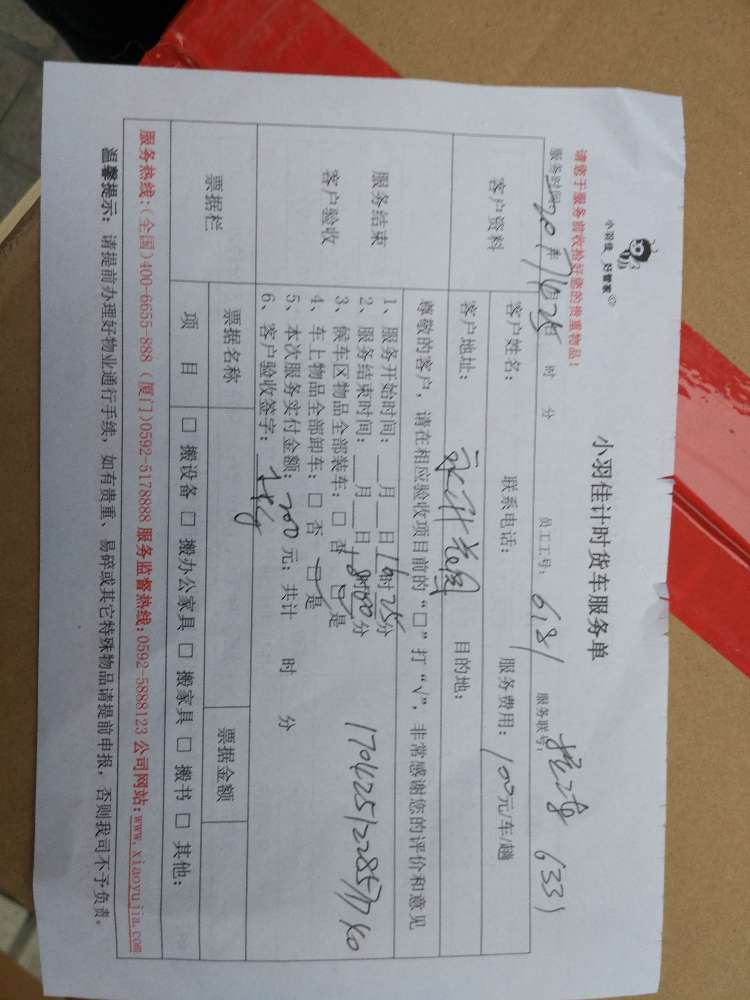 小羽佳 好管家®
小羽佳计时货车服务单
请您于服务前收检好您的贵重物品！
服务时间： 2017年4月25日 时 分 员工工号： 6181 服务联号： 6331
客户资料
客户姓名： 联系电话： 服务费用： 100元/车/趟
客户地址： 永升花园 目的地：
尊敬的客户，请在相应验收项目前的“□”打“√”，非常感谢您的评价和意见
服务结束
客户验收
1、服务开始时间：__月__日16时25分
2、服务结束时间：__月__日18时00分
3、候车区物品全部装车：□ 否 □ 是
4、车上物品全部卸车：□ 否 □ 是
5、本次服务实付金额：200元；共计 时 分
6、客户验收签字：
票据栏
票据名称 票据金额
项 目 □ 搬设备 □ 搬办公家具 □ 搬家具 □ 搬书 □ 其他：
服务热线：(全国)400-6655-888 (厦门)0592-5178888 服务监督热线:0592-5888123 公司网站:www.xiaoyujia.com
温馨提示：请提前办理好物业通行手续，如有贵重、易碎或其它特殊物品请提前申报，否则我司不予负责。